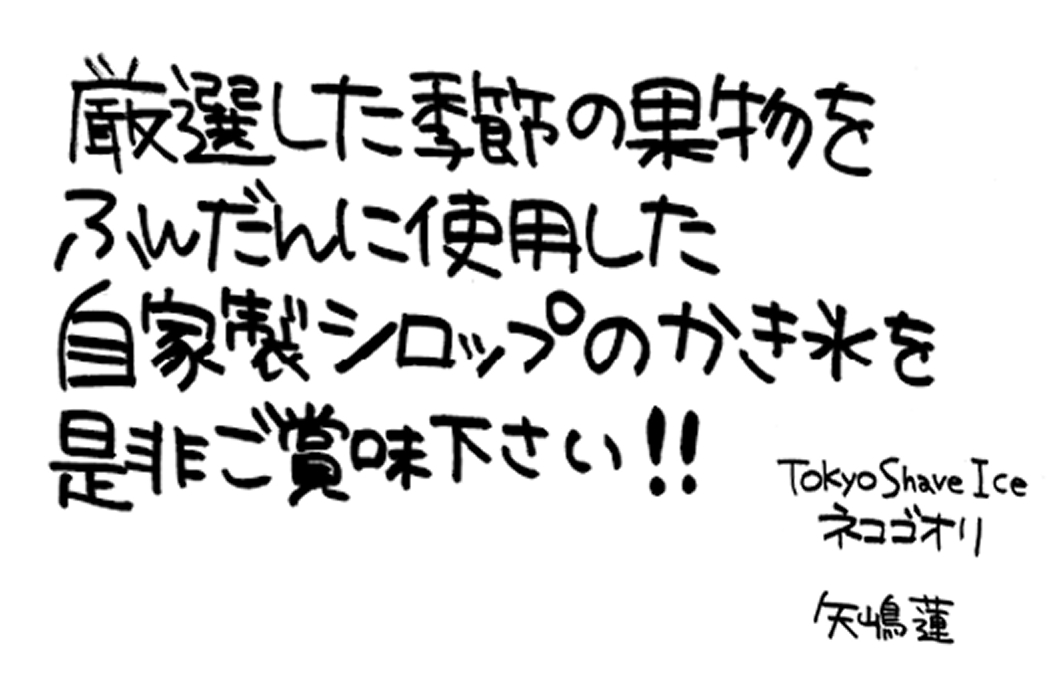 厳選した季節の果物を
ふんだんに使用した
自家製シロップのかき氷を
是非ご賞味下さい!!
Tokyo Shave Ice
ネコゴオリ
矢嶋蓮